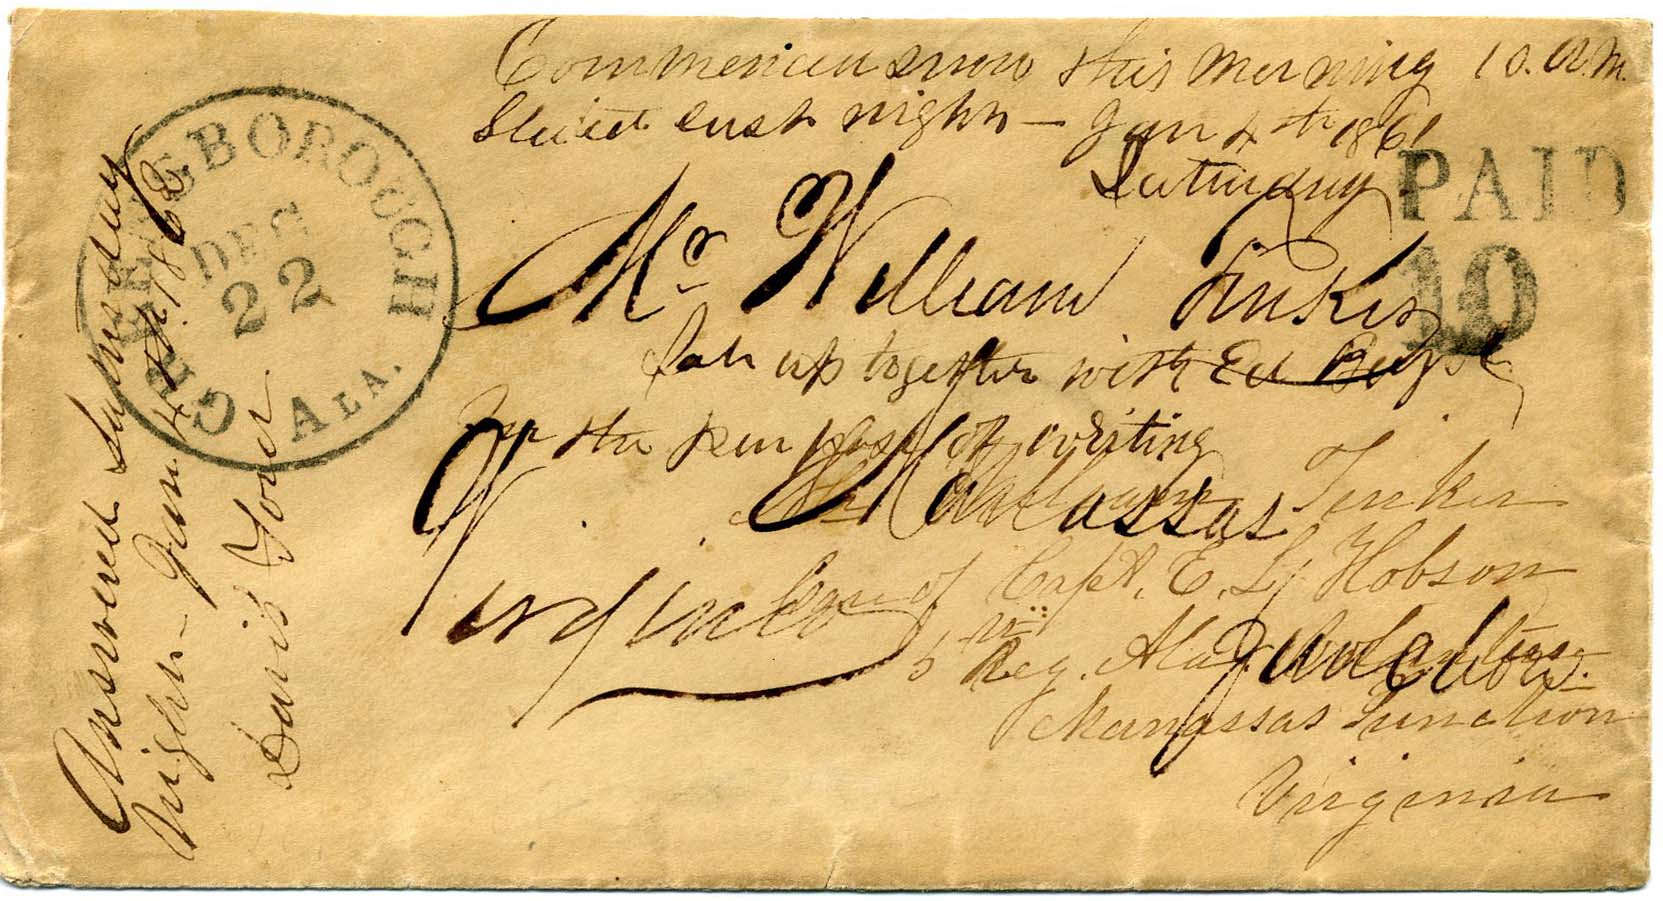 Commencen snow this morning 10. A.M.
Sleited last night — Jan 4th 1861
Saturday
PAID
10
GREENSBOROUGH
DEC
22
ALA.
Mr William Tinker
Sat up together with Ed
For the purpose of writing
Manassas
Virginia
Junction
Mr William Tinker
Care of Capt. E. L. Hobson
5th Reg. Ala. Volunteers
Manassas Junction
Virginia
Answered Saturday
Night — Jan 4th 1862
David